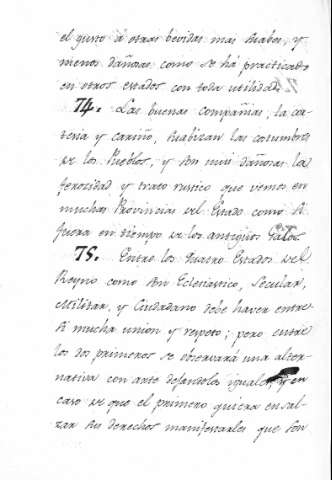 el gusto á otras bevidas mas suabes, y
menos dañosas como se há practicado
en otros estados con toda utilidad.
74. Las buenas compañias, la cor-
teria y cariño, suabizan las costumbres
de los Pueblos, y son mui dañosas la
ferocidad y trato rustico que vemos en
muchas Provincias del Estado como si
fuera en tiempo de los antiguos Galos.
75. Entre los quatro Estados del
Reyno como son Eclesiastico, Secular,
Militar, y Ciudadano debe haver entre
si mucha union y respeto; pero entre
los dos primeros se observará una alter-
nativa con arte dejandolos iguales, y en
caso de que el primero quiera ensal-
zar sus derechos manifestarles que son